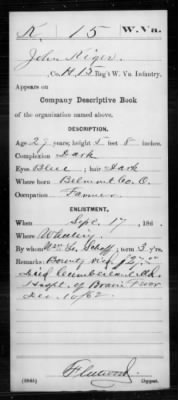 K. 15 W. Va.
John Kiger
, Co. H, 15 Reg't W. Va. Infantry.
Appears on
Company Descriptive Book
of the organization named above.
DESCRIPTION.
Age 29 years; height 5 feet 8 inches.
Complexion Dark
Eyes Blue ; hair Dark
Where born Belmont Co. O.
Occupation Farmer
ENLISTMENT.
When Sept. 17 , 186 .
Where Wheeling
By whom Wm Geo. ; term 3 y'rs.
Remarks: Bounty
Died Cumberland Md.
Hospt. of Brain Fever
Dec. 10/62
Copyist.